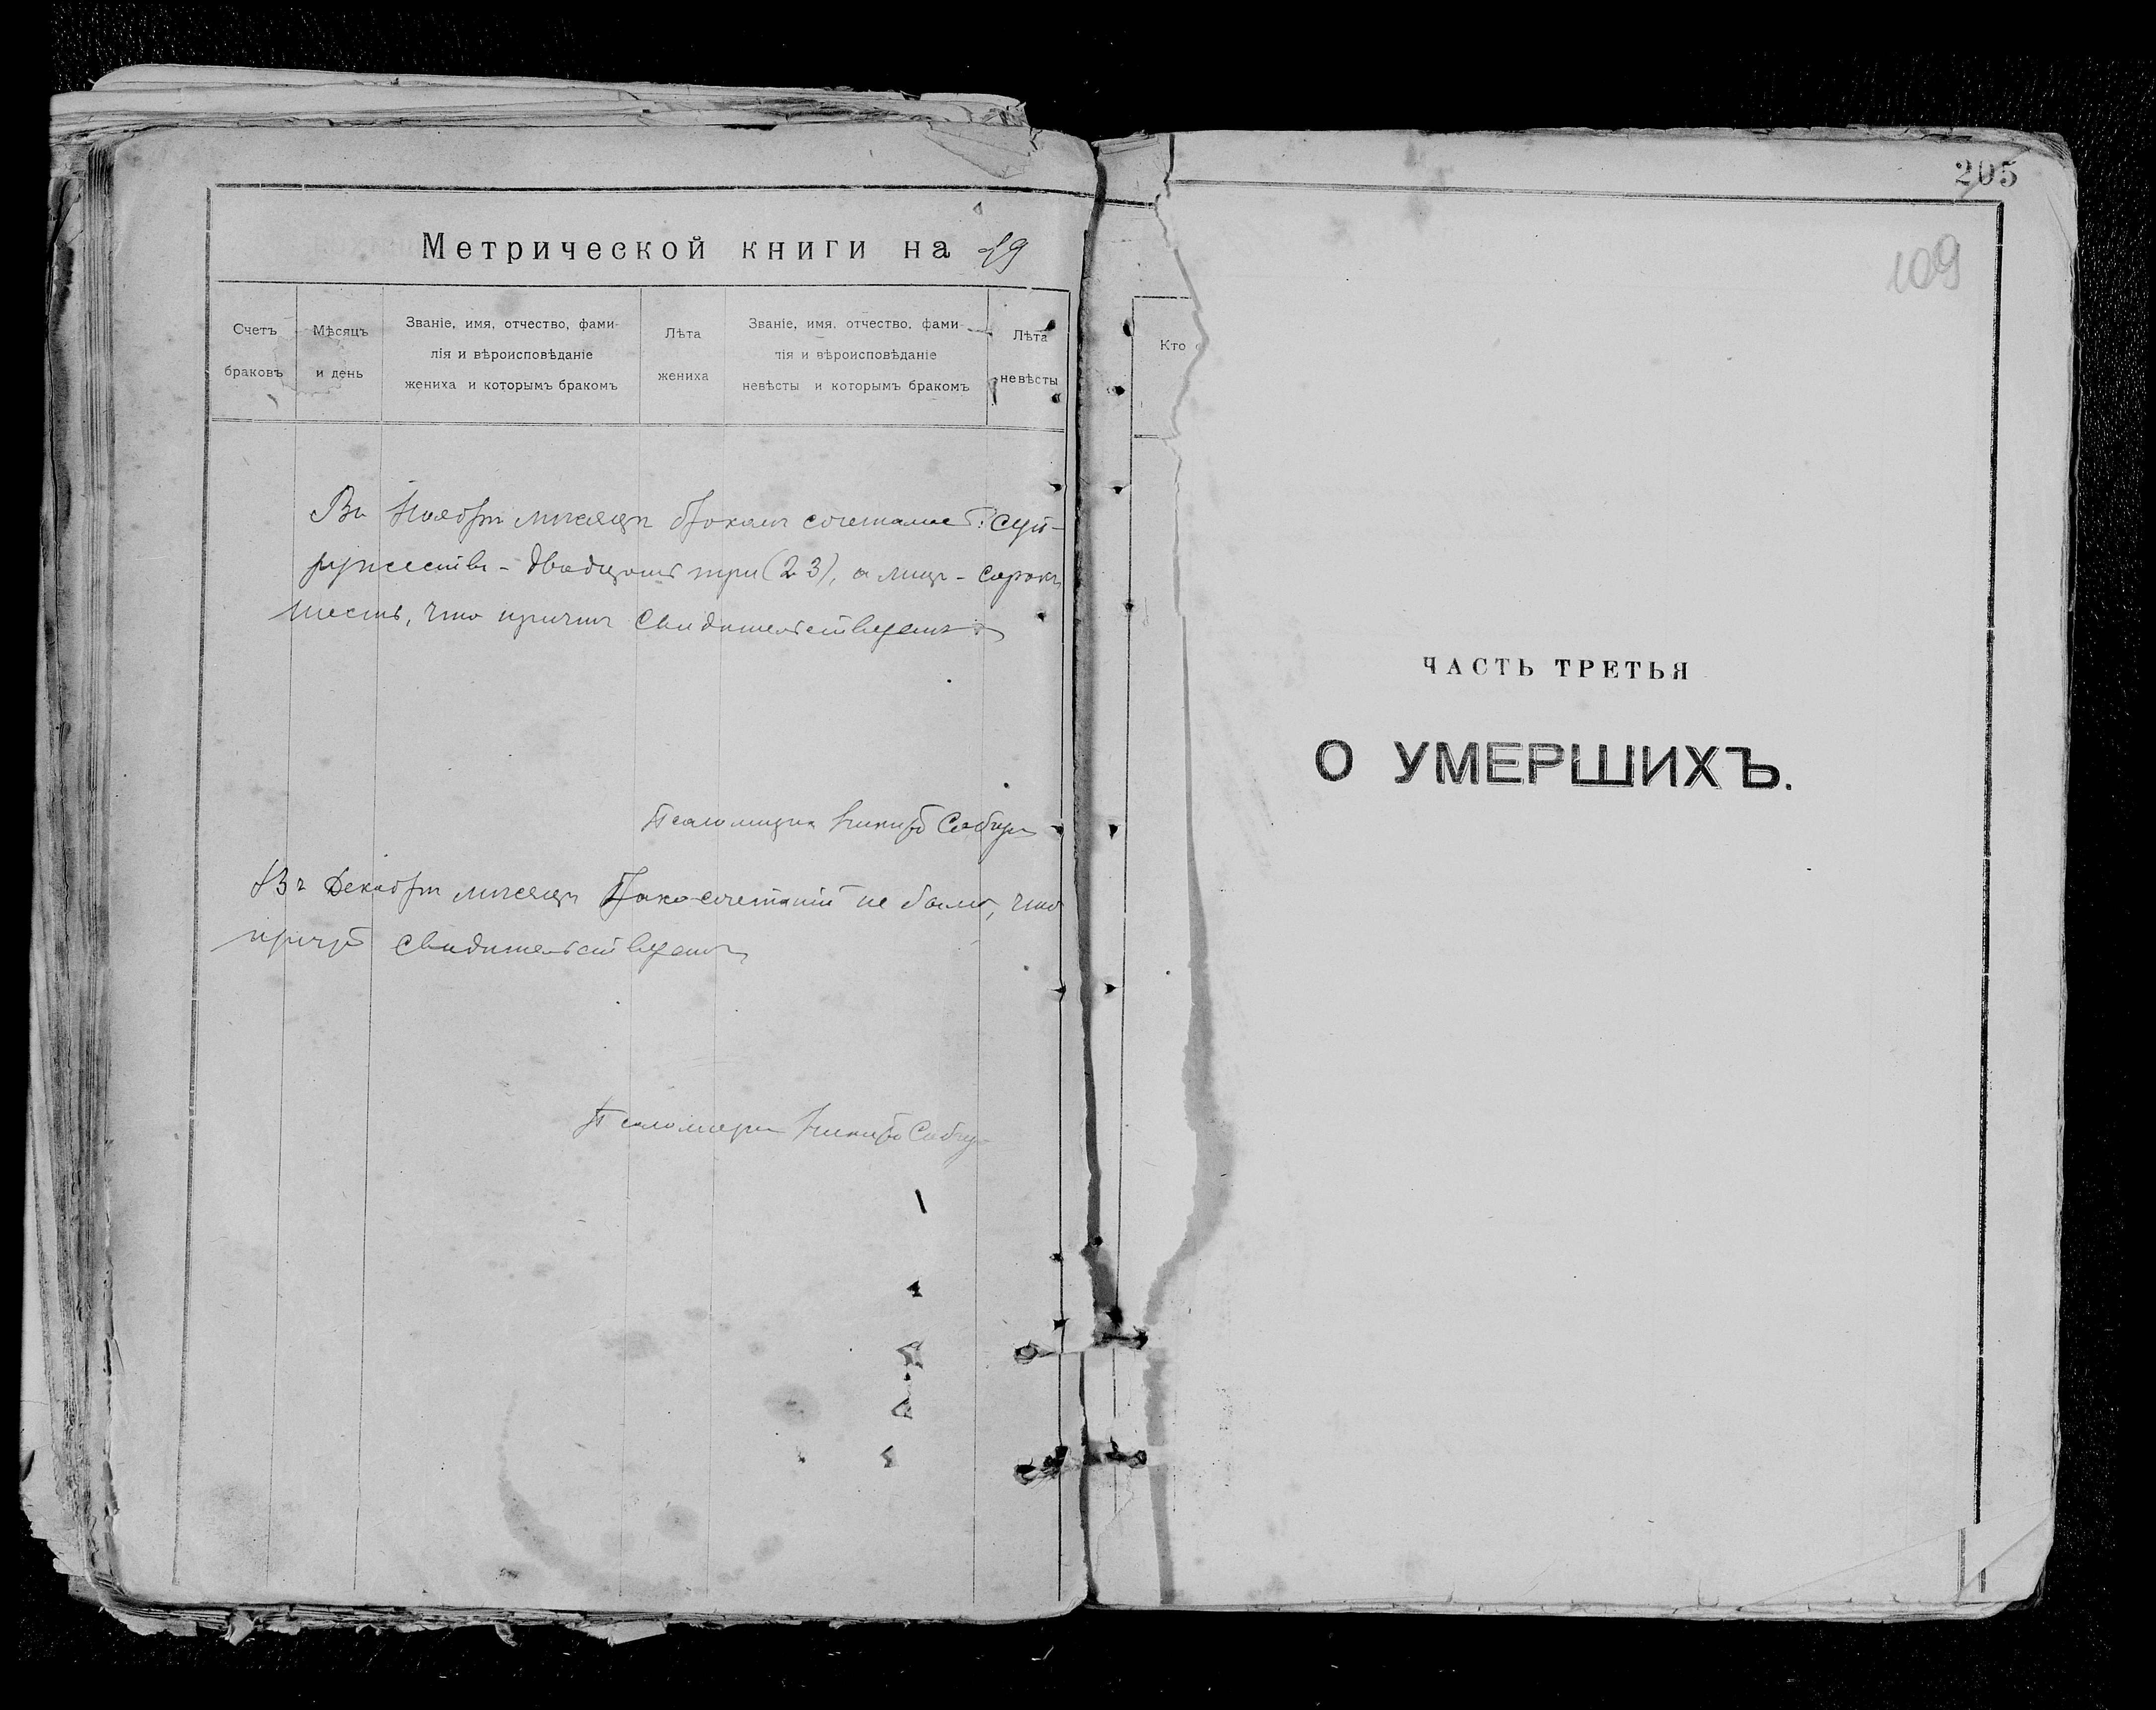 Метрической книги на 19
Счетъ браковъ
Мѣсяцъ и день
Званіе, имя, отчество, фами-
лія и вѣроисповѣданіе
жениха и которымъ бракомъ
Лѣта жениха
Званіе, имя, отчество, фами-
лія и вѣроисповѣданіе
невѣсты и которымъ бракомъ
Лѣта невѣсты
Въ Ноябрѣ мѣсяцѣ бракомъ сочеталось суп-
ружествъ - двадцать три (23), а лицъ - сорокъ
шесть, что причтъ свидѣтельствуетъ
Псаломщикъ
Въ Декабрѣ мѣсяцѣ бракосочетаній не было, что
причтъ свидѣтельствуетъ
Псаломщикъ
205
109
Кто
ЧАСТЬ ТРЕТЬЯ
О УМЕРШИХЪ.